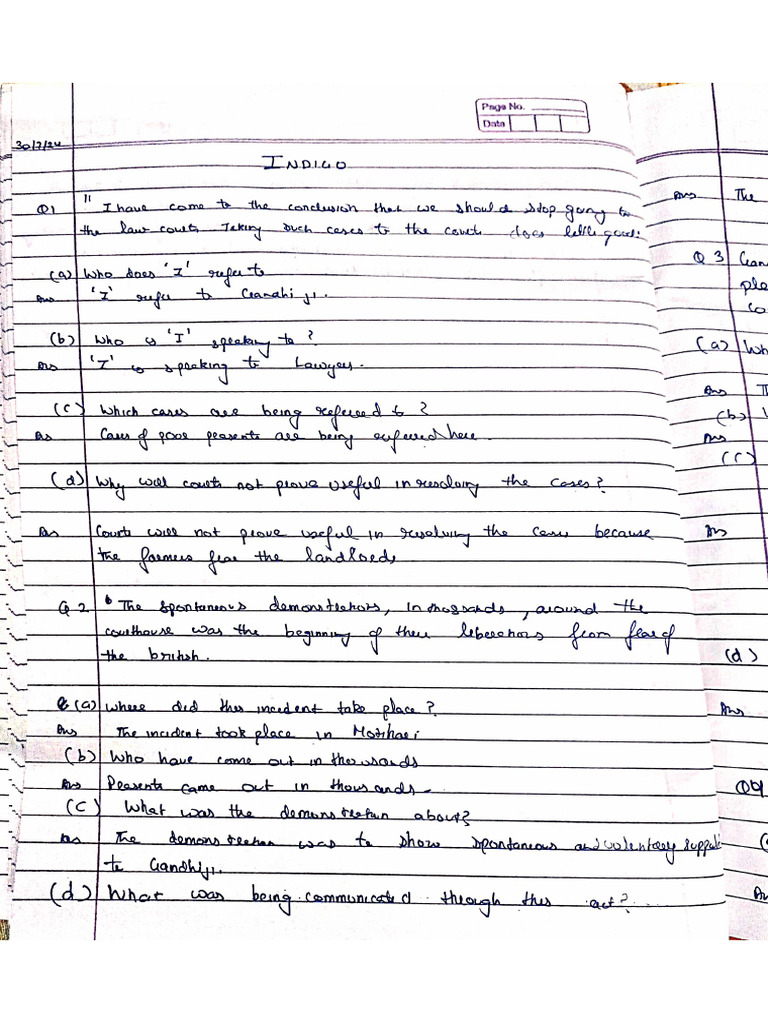 Page No.
Date
30/7/24
INDIGO
Q1 "I have come to the conclusion that we should stop going to
the law courts Taking such cases to the courts does little good."
(a) Who does 'I' refer to
Ans 'I' refer to Gandhi ji.
(b) Who is 'I' speaking to?
Ans 'I' is speaking to Lawyers.
(c) Which cases are being refered to?
Ans Cases of poor peasents are being refered here.
(d) Why will courts not prove useful in resolving the cases?
Ans Courts will not prove useful in resolving the cases because
the farmers fear the landloads
Q2 "The spontaneous demonstrations, in thousands, around the
courthouse was the beginning of their liberations from fear of
the british.
(a) Where did this incident take place?
Ans The incident took place in Motihari
(b) Who have come out in thousands
Ans Peasents came out in thousands.
(c) What was the demonstration about?
Ans The demonstration was to show spontaneous and voluntary
to Gandhiji.
(d) What was being communicated through this act?
Ans The
Q3
(a)
Ans
(b)
Ans
(c)
Ans
(d)
Ans